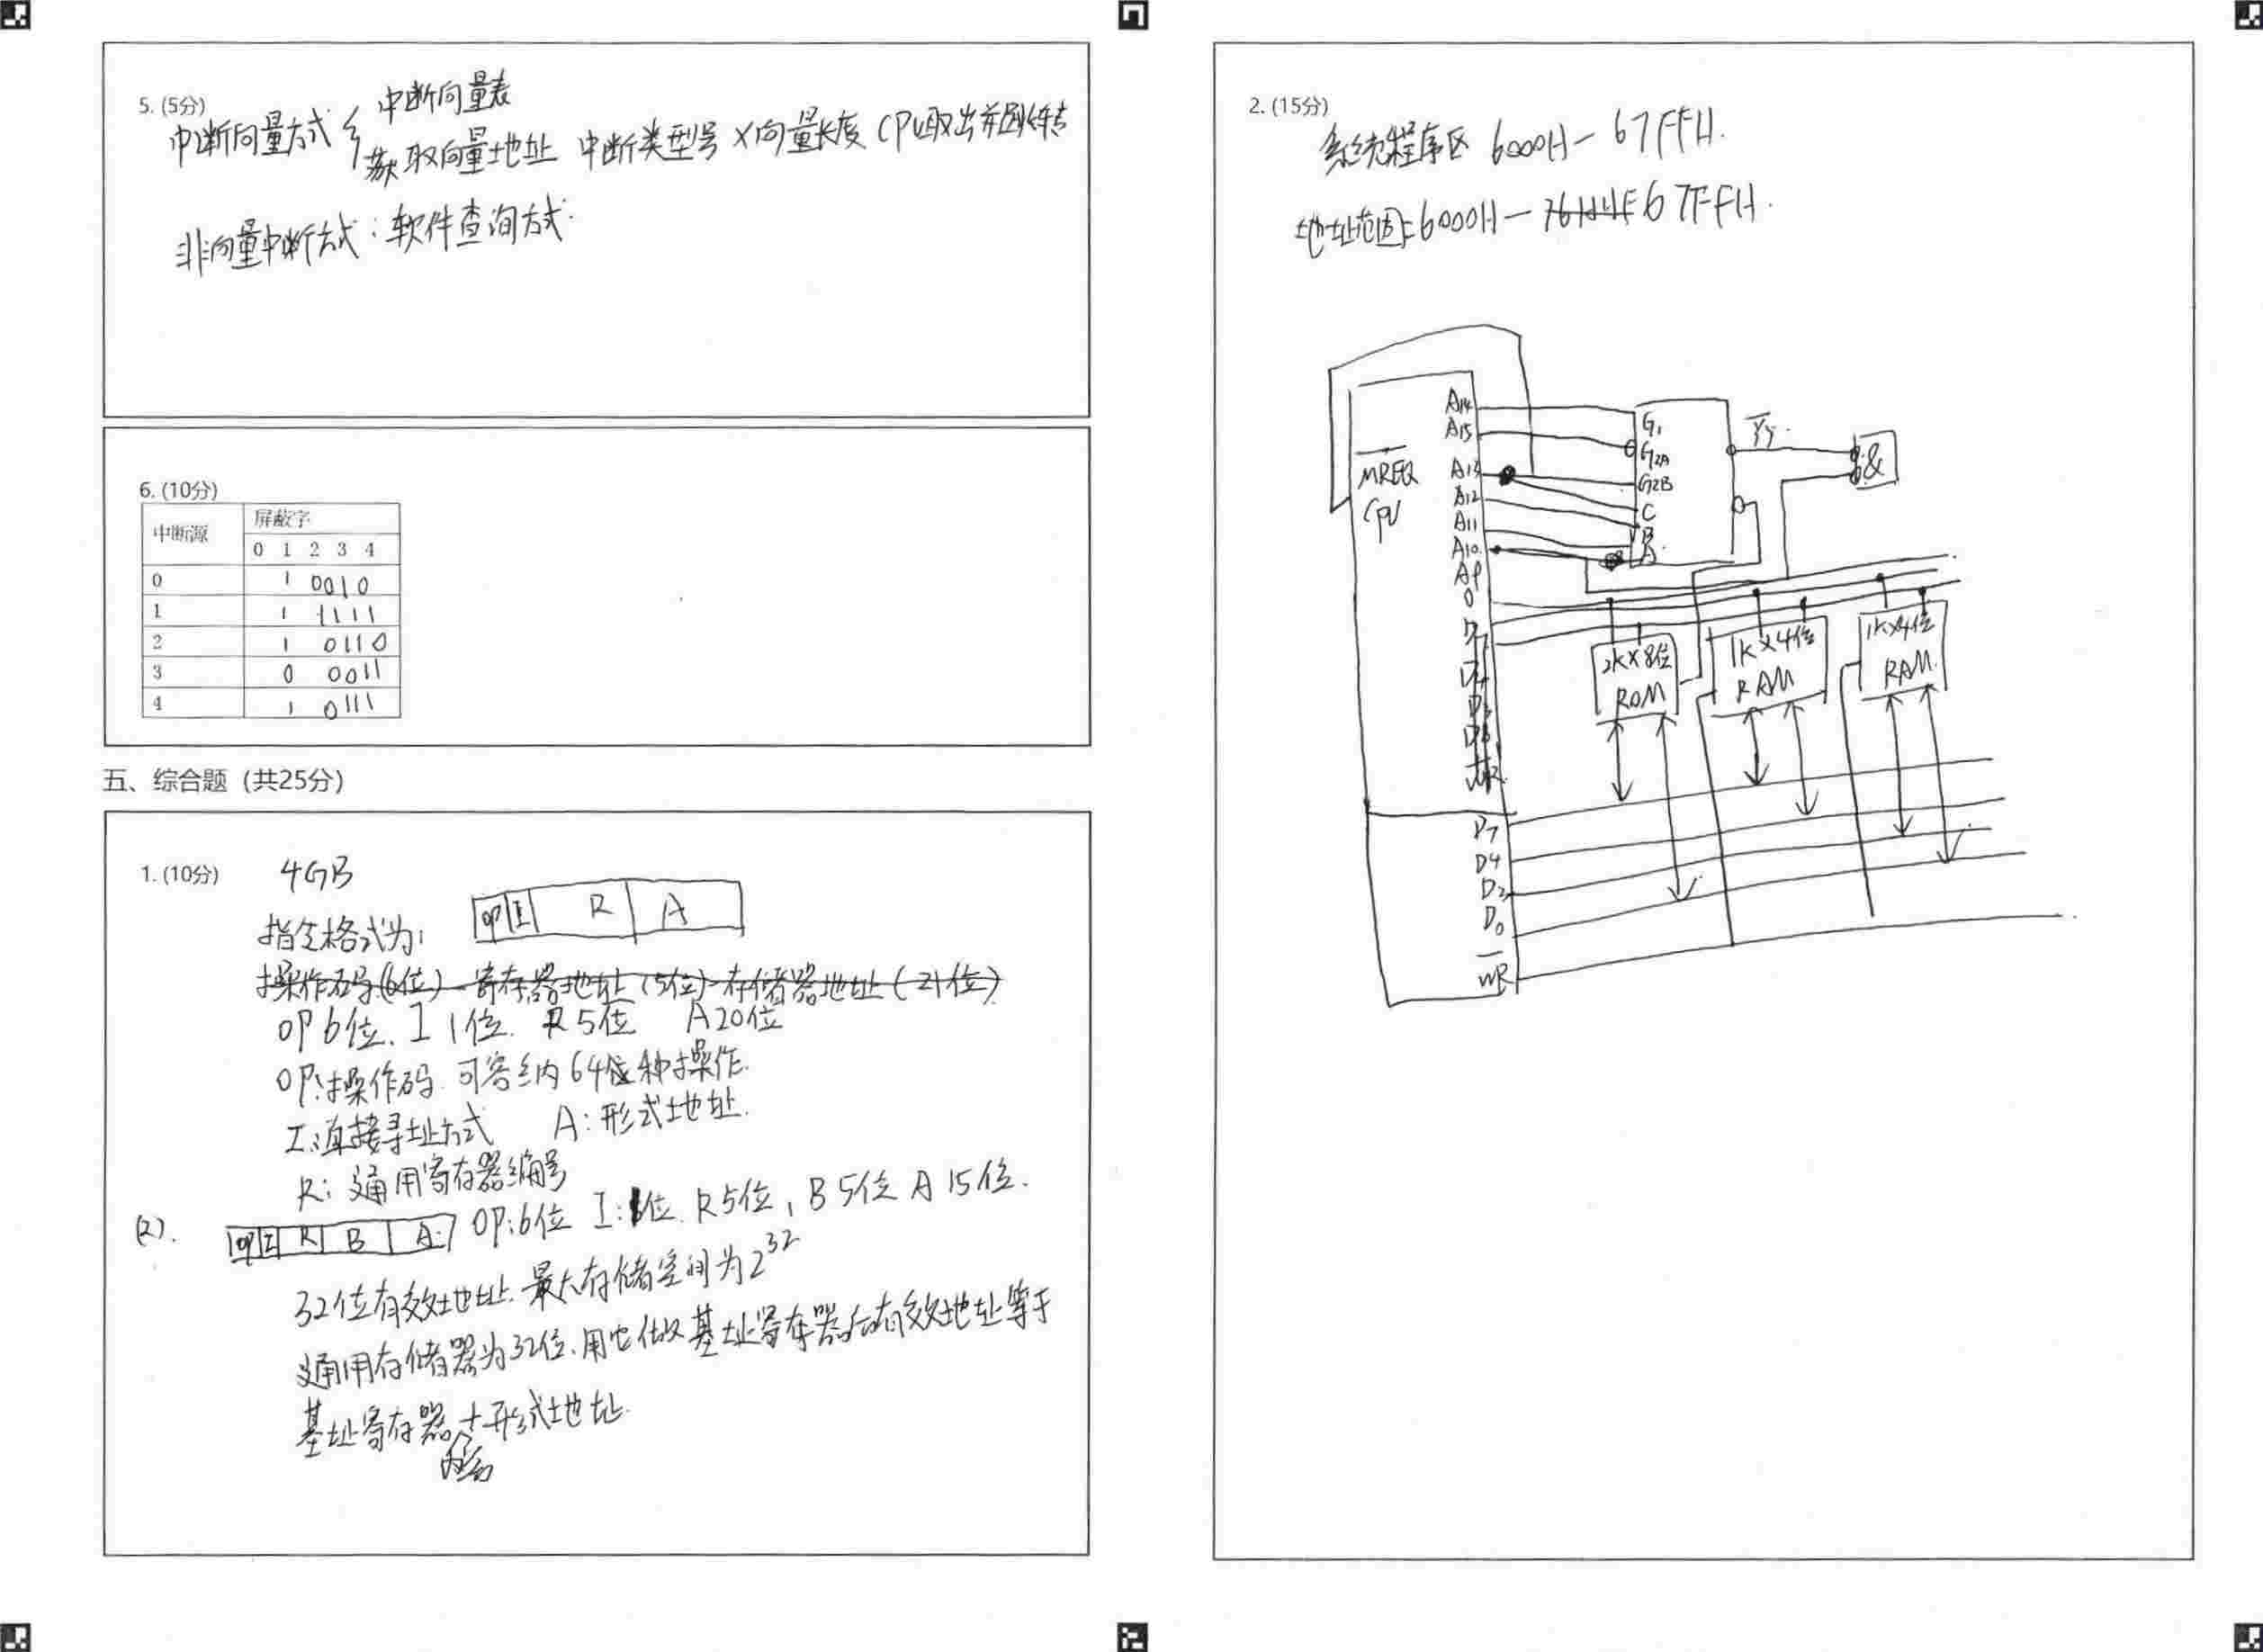 5. (5分)
中断向量方式 { 中断向量表
获取向量地址 中断类型号×向量长度 CPU取出并
非向量中断方式：软件查询方式.
6. (10分)
中断源 屏蔽字
0 1 2 3 4
0 1 0 0 1 0
1 1 1 1 1 1
2 1 0 1 1 0
3 0 0 0 1 1
4 1 0 1 1 1
五、综合题（共25分）
1. (10分) 4GB
指令格式为: OP I R A
操作码(6位) 寄存器地址(5位) 存储器地址(21位)
OP 6位. I 1位. R 5位 A 20位
OP:操作码. 可容纳64种操作.
I:直接寻址方式 A:形式地址.
R: 通用寄存器编号
(2). OP I R B A OP:6位 I:1位. R5位, B5位 A 15位.
32位有效地址. 最大存储空间为2^32
通用存储器为32位. 用它做基址寄存器后有效地址等于
基址寄存器+形式地址.
内容
2. (15分)
系统程序区 6000H— 67FFH.
地址范围:6000H— 67FFH.
A14
A15
MREQ
CPU
A13
A12
A11
A10
A9
0
WR
G1
G2A
G2B
C
B
A
&
2K×8位
ROM
1K×4位
RAM
1K×4位
RAM
D7
D4
D3
D0
WR